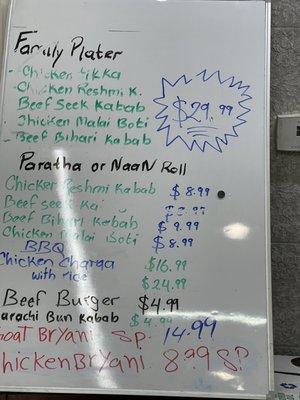 Family Plater
- Chicken tikka
- Chicken Reshmi K.
Beef Seek Kabab
- Chicken Malai Boti
- Beef Bihari Kabab
$29.99
Paratha or NaaN Roll
Chicken Reshmi Kabab $8.99
Beef seek Ka
Beef Bihari Kebab $9.99
Chicken Malai Boti $8.99
BBQ
Chicken Charga $16.99
with rice $24.99
Beef Burger $4.99
arachi Bun Kabab $4.99
Goat Bryani SP. 14.99
hicken Bryani 8.99 SP